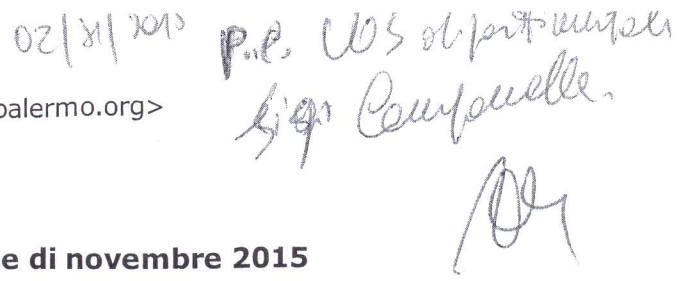 02/11/2015 p.c. UOS dipartimentali
Sig. Campanella.
palermo.org>
e di novembre 2015